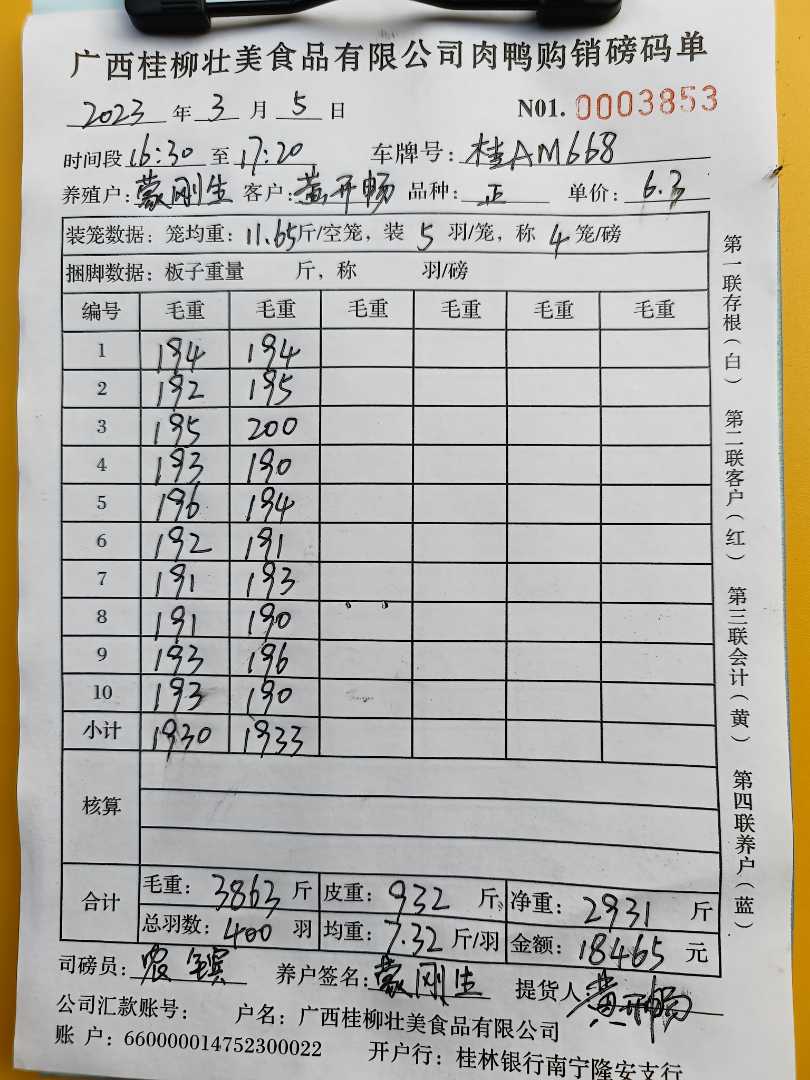 广西桂柳壮美食品有限公司肉鸭购销磅码单
2023 年 3 月 5 日 N01. 0003853
时间段 16:30 至 17:20 车牌号: 桂AM668
养殖户: 蒙刚生 客户: 黄开畅 品种: 正 单价: 6.3
装笼数据: 笼均重: 11.65斤/空笼, 装 5 羽/笼, 称 4 笼/磅
捆脚数据: 板子重量 斤, 称 羽/磅
编号 毛重 毛重 毛重 毛重 毛重 毛重
1 194 194
2 192 195
3 195 200
4 193 190
5 196 194
6 192 191
7 191 193
8 191 190
9 193 196
10 193 190
小计 1930 1933
核算
合计 毛重: 3863 斤 皮重: 932 斤 净重: 2931 斤
总羽数: 400 羽 均重: 7.32 斤/羽 金额: 18465 元
司磅员: 农 养户签名: 蒙刚生 提货人: 黄开畅
公司汇款账号: 户名: 广西桂柳壮美食品有限公司
账 户: 660000014752300022 开户行: 桂林银行南宁隆安支行
第一联存根(白) 第二联客户(红) 第三联会计(黄) 第四联养户(蓝)